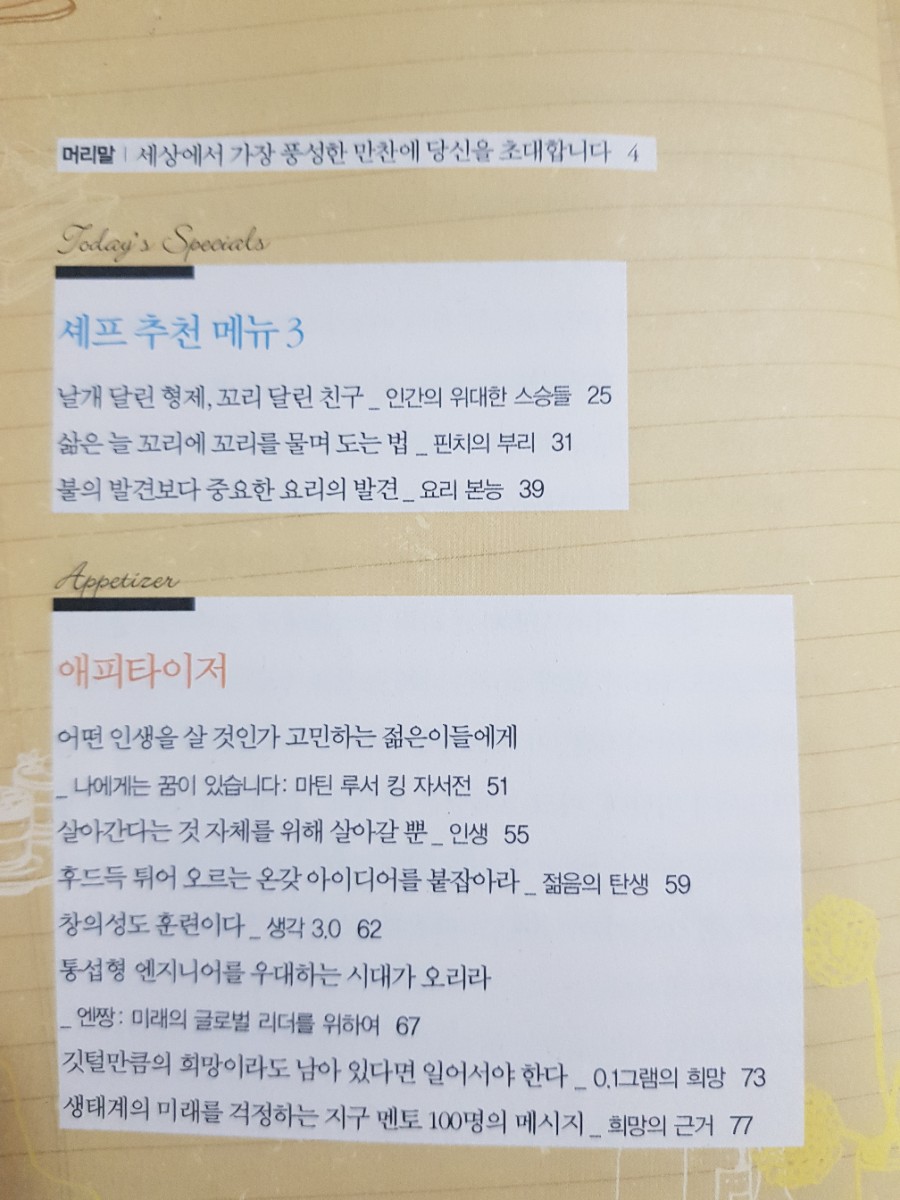 머리말 | 세상에서 가장 풍성한 만찬에 당신을 초대합니다 4
Today's Specials
셰프 추천 메뉴 3
날개 달린 형제, 꼬리 달린 친구 _ 인간의 위대한 스승들 25
삶은 늘 꼬리에 꼬리를 물며 도는 법 _ 핀치의 부리 31
불의 발견보다 중요한 요리의 발견 _ 요리 본능 39
Appetizer
애피타이저
어떤 인생을 살 것인가 고민하는 젊은이들에게
_ 나에게는 꿈이 있습니다: 마틴 루서 킹 자서전 51
살아간다는 것 자체를 위해 살아갈 뿐 _ 인생 55
후드득 튀어 오르는 온갖 아이디어를 붙잡아라 _ 젊음의 탄생 59
창의성도 훈련이다 _ 생각 3.0 62
통섭형 엔지니어를 우대하는 시대가 오리라
_ 엔짱: 미래의 글로벌 리더를 위하여 67
깃털만큼의 희망이라도 남아 있다면 일어서야 한다 _ 0.1그램의 희망 73
생태계의 미래를 걱정하는 지구 멘토 100명의 메시지 _ 희망의 근거 77